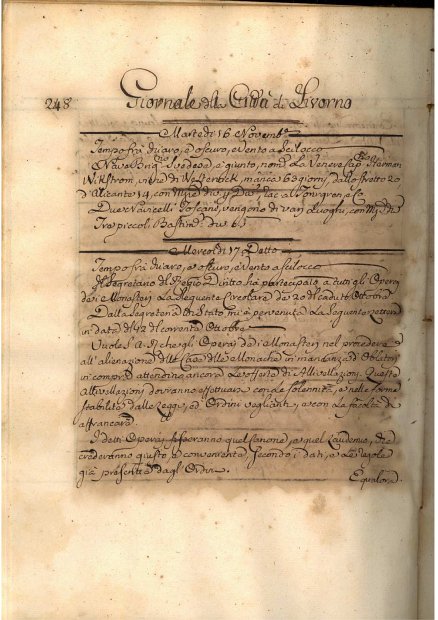 248
Giornale della Città di Livorno
Martedì 16 Novemb.e
Tempo fra chiaro, e oscuro, e Vento a Scilocco
Nave Svedese, è giunto, nom.a La Venere Cap.
manca 63 giorni, dallo stretto 20
d'Alicante 14, con
Due Navicelli Toscani, vengono di varj Luoghi, con
Tre piccoli Bastim.ti
Mercoledì 17: Detto
Tempo fra chiaro, e oscuro, e Vento a Scilocco
Il Segretario del Regio Diritto ha partecipato a tutti gli Operaj
dei Monasteri La Seguente Circolare de 20 del caduto Ottobre
Dalla Segreteria di Stato mi è pervenuta La Seguente Lettera
in data del 12 del corrente Ottobre
Vuole S. A. R. che gli Operaj dei Monasteri nel procedere
all'alienazione delle Monache in mancanza di Oblatori
in compre attendino ancora Le offerte di Allivellazioni, Queste
Allivellazioni dovranno effettuarsi con Le Solennità, e nelle forme
stabilite dalle Leggi, e Ordini veglianti, e con La facoltà di
affrancare
I detti Operaj fisseranno quel Canone, e quel Laudemio, che
crederanno giusto, e conveniente, Secondo i dati, e Le regole
già presentate dagli Ordini.
Equalora